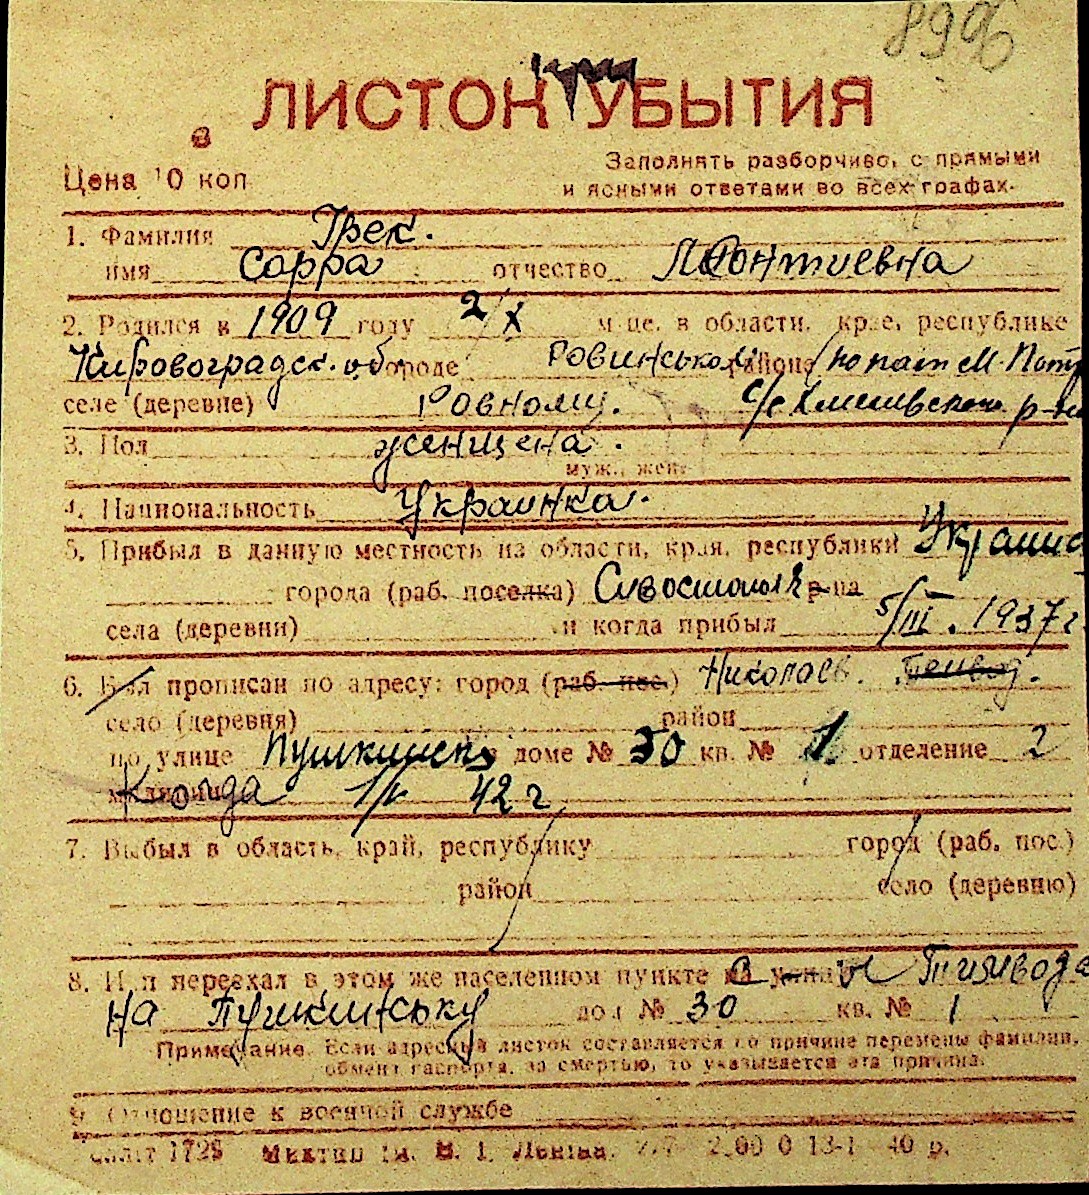 8996
ЛИСТОК УБЫТИЯ
Цена 10 коп
Заполнять разборчиво, с прямыми
и ясными ответами во всех графах.
1. Фамилия Грек.
имя Сарра отчество Леонтиевна
2. Родился в 1909 году 2/X м-це, в области, крае, республике
Кировоградск. обл. городе Ровинський районе
селе (деревне) Ровному. с/с
3. Пол женщена.
муж., жен.
4. Национальность Украинка.
5. Прибыл в данную местность из области, края, республики Украина
города (раб. поселка) р-на
села (деревни) и когда прибыл 5/III. 1937 г
6. Был прописан по адресу: город (раб. пос.) Николаев.
село (деревня) район
по улице Пушкинск доме № 30 кв. № 1. отделение 2
милиции Когда 42 г.
7. Выбыл в область, край, республику город (раб. пос.)
район село (деревню)
8. Или переехал в этом же населенном пункте на улицу
на Пушкинську дом № 30 кв. № 1
Примечание. Если адресный листок составляется по причине перемены фамилии,
обмена паспорта, за смертью, то указывается эта причина.
9. Отношение к военной службе